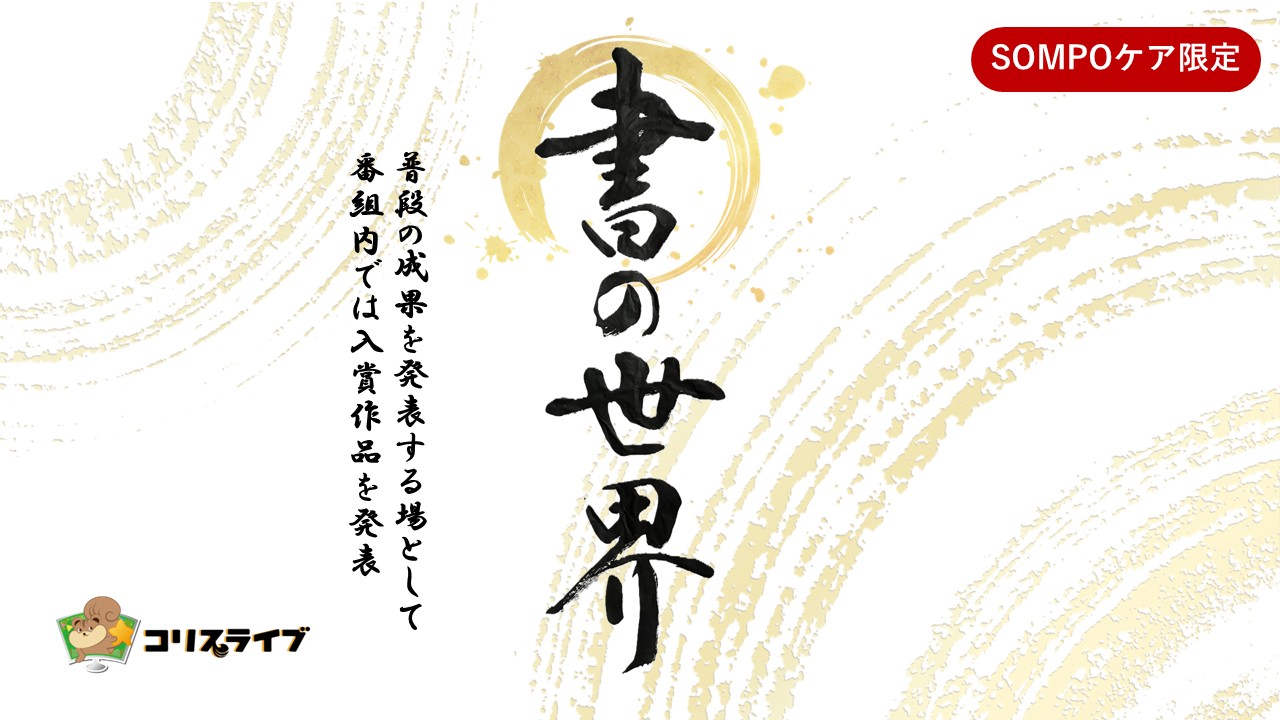 SOMPOケア限定
書の世界
普段の成果を発表する場として
番組内では入賞作品を発表
コリスライブ